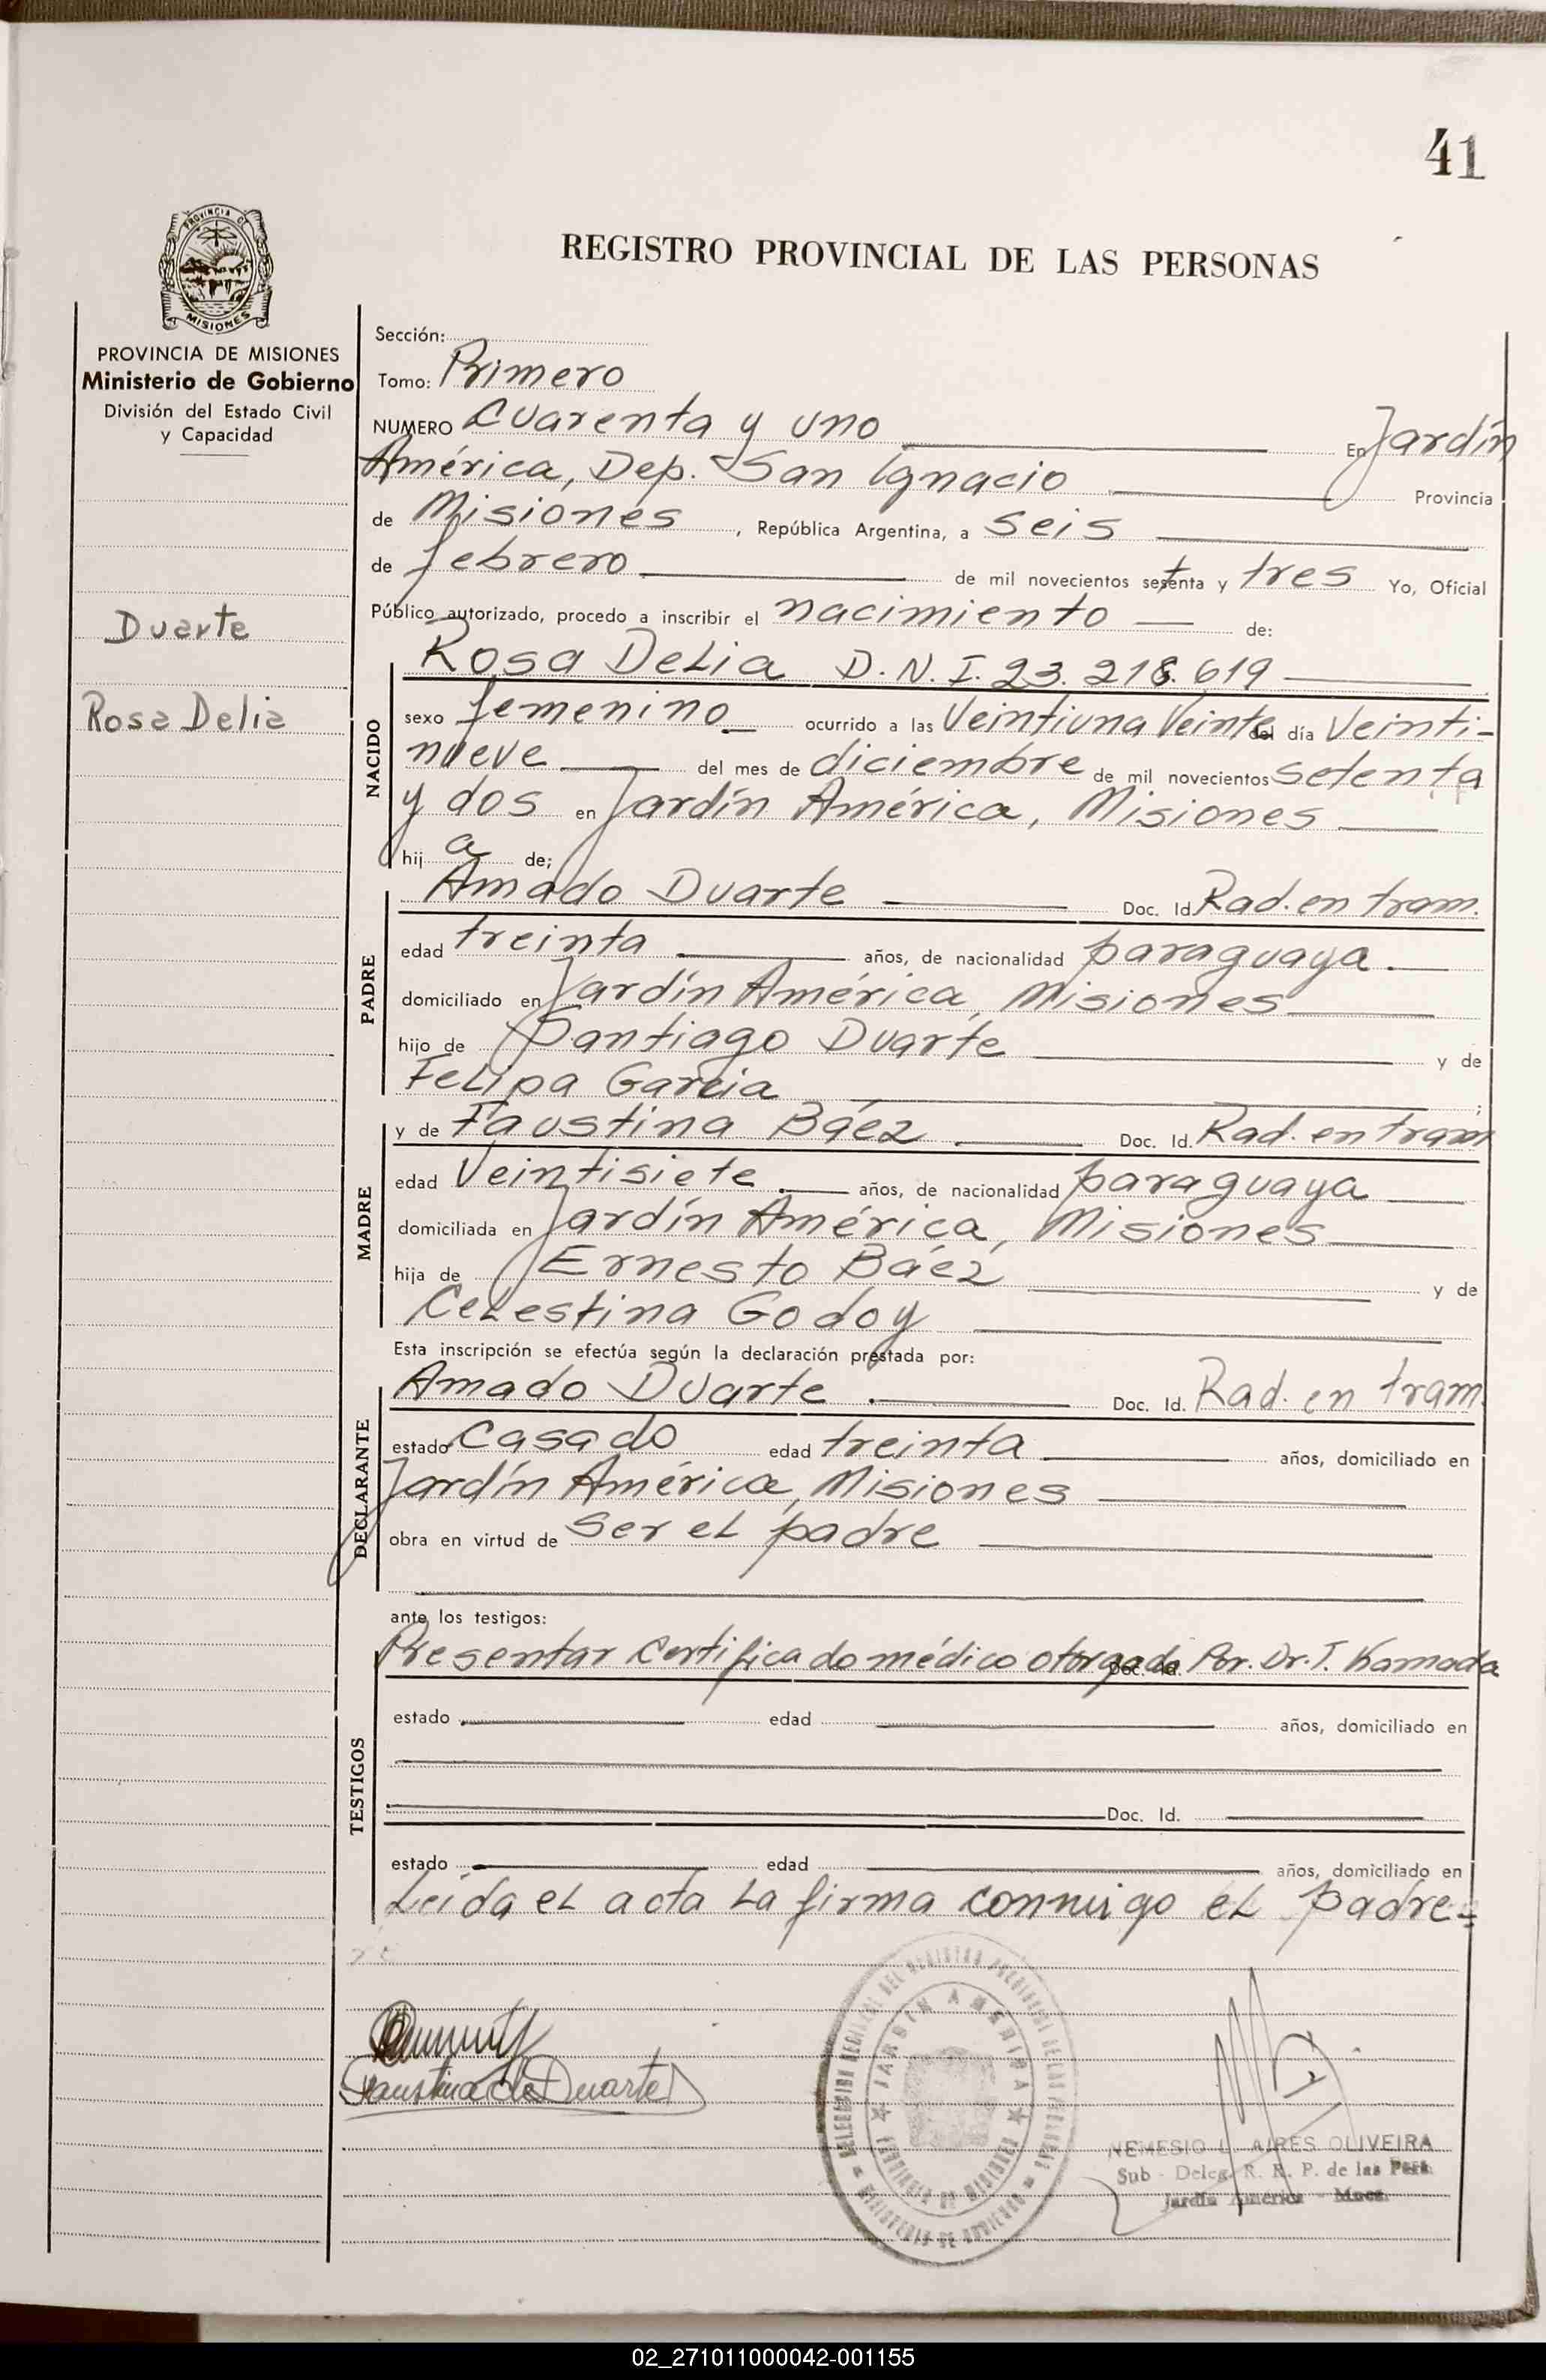 41
PROVINCIA DE
MISIONES
REGISTRO PROVINCIAL DE LAS PERSONAS
PROVINCIA DE MISIONES
Ministerio de Gobierno
División del Estado Civil
y Capacidad
Duarte
Rosa Delia
Sección:
Tomo: Primero
NUMERO Cuarenta y uno En Jardín
América, Dep. San Ignacio Provincia
de Misiones, República Argentina, a Seis
de febrero de mil novecientos setenta y tres Yo, Oficial
Público autorizado, procedo a inscribir el nacimiento de:
NACIDO
Rosa Delia D.N.I. 23.218.619
sexo femenino ocurrido a las Veintiuna Veinte del día Veinti-
nueve del mes de diciembre de mil novecientos Setenta
y dos en Jardín América, Misiones
hij a de;
PADRE
Amado Duarte Doc. Id. Rad. en tram.
edad treinta años, de nacionalidad paraguaya
domiciliado en Jardín América, Misiones
hijo de Santiago Duarte y de
Felipa Garcia ;
MADRE
y de Faustina Báez Doc. Id. Rad. en tram
edad Veintisiete años, de nacionalidad paraguaya
domiciliada en Jardín América, Misiones
hija de Ernesto Báez y de
Celestina Godoy
Esta inscripción se efectúa según la declaración prestada por:
DECLARANTE
Amado Duarte Doc. Id. Rad. en tram.
estado Casado edad treinta años, domiciliado en
Jardín América, Misiones
obra en virtud de Ser el padre
ante los testigos:
TESTIGOS
Presentar Certificado médico otorgado Por. Dr. T. Kamada
estado edad años, domiciliado en
Doc. Id.
estado edad años, domiciliado en
Leída el acta la firma conmigo el padre=
Faustina de Duarte
DELEGACION REGIONAL DEL REGISTRO PROVINCIAL DE LAS PERSONAS
MINISTERIO DE GOBIERNO
JARDIN AMERICA
PROVINCIA DE MISIONES
NEMESIO L. AIRES OLIVEIRA
Sub - Deleg. R. R. P. de las Pers.
Jardín América - Mnes.
02_271011000042-001155